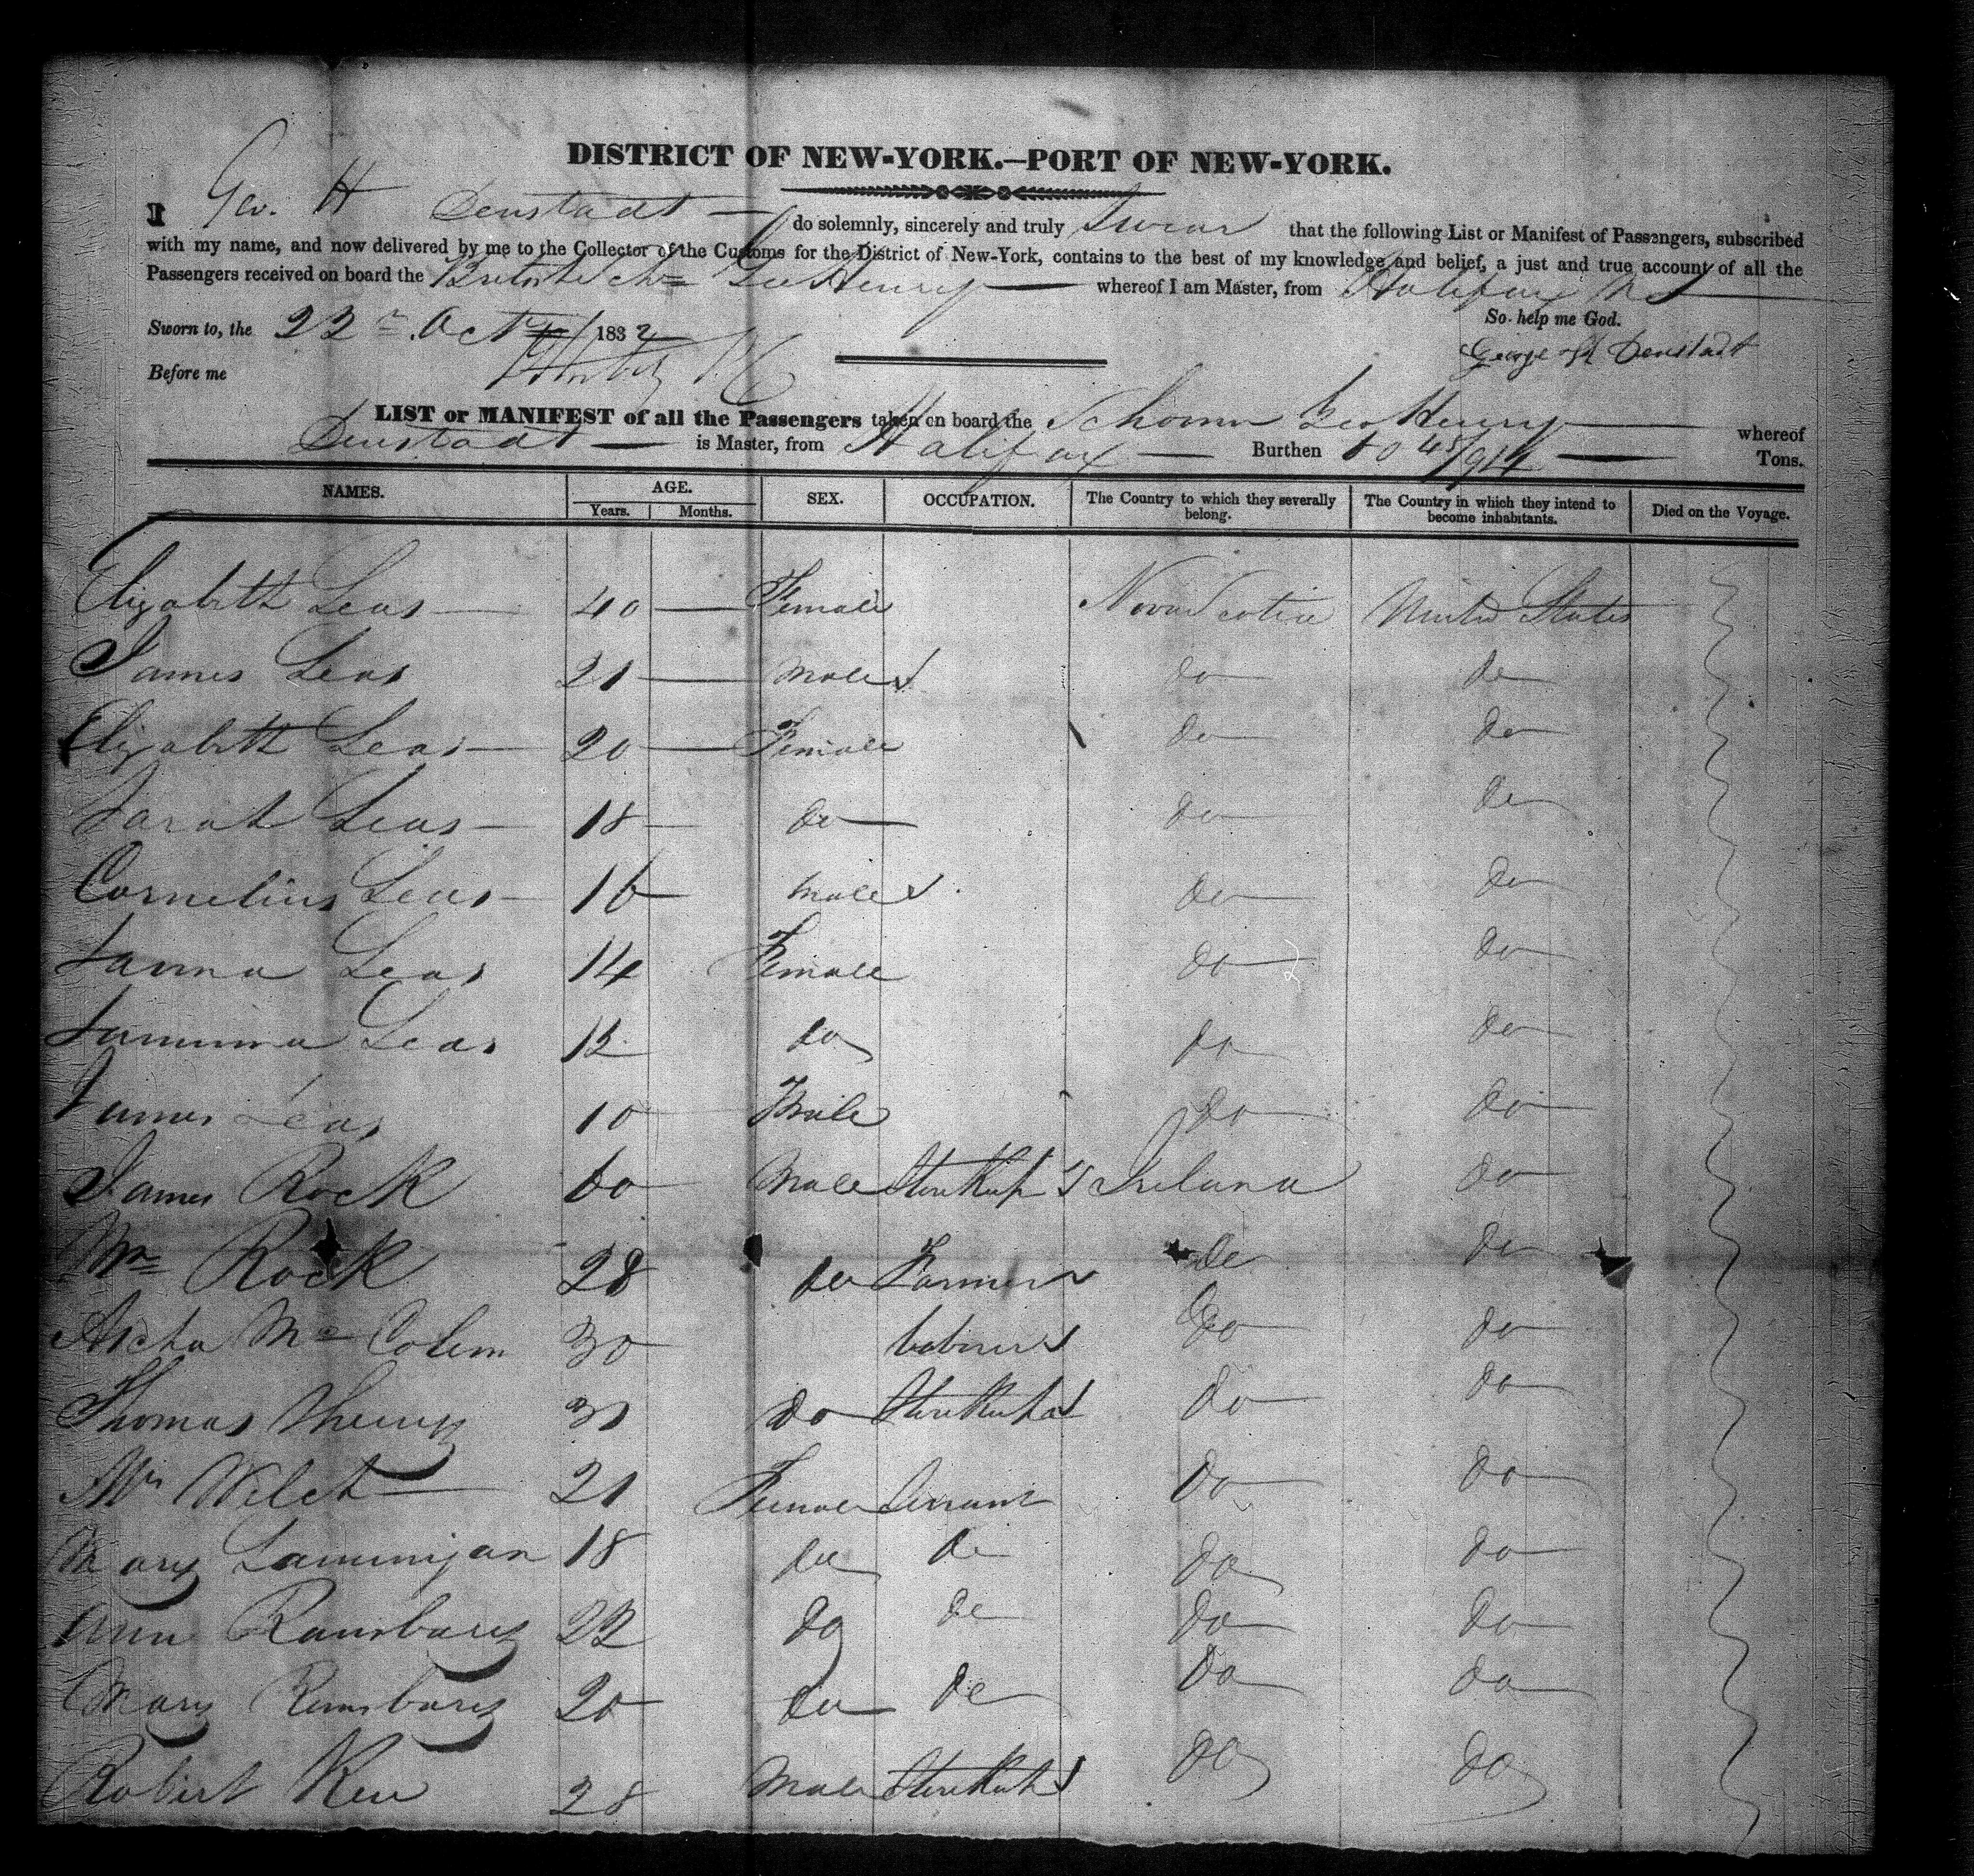 DISTRICT OF NEW-YORK.—PORT OF NEW-YORK.
I Geo. H Denstadt do solemnly, sincerely and truly Swear that the following List or Manifest of Passengers, subscribed
with my name, and now delivered by me to the Collector of the Customs for the District of New-York, contains to the best of my knowledge and belief, a just and true account of all the
Passengers received on board the British Schr Geo Henry whereof I am Master, from Halifax NS
So help me God.
Sworn to, the 22 Oct 1832
George H Denstadt
Before me
LIST or MANIFEST of all the Passengers taken on board the Schoonr Geo Henry whereof
Denstadt is Master, from Halifax Burthen 60 45/94 Tons.
NAMES. AGE. SEX. OCCUPATION. The Country to which they severally belong. The Country in which they intend to become inhabitants. Died on the Voyage.
Years. Months.
Elizabeth Leas 40 Female Nova Scotia United States
James Leas 21 male do do
Elizabeth Leas 20 Female do do
Sarah Leas 18 do do do
Cornelius Leas 16 male do do
Leas 14 Female do do
Leas 12 do do do
James Leas 10 Male do do
James Rock 60 Male Storekeepr Ireland do
Wm Rock 28 do Farmer do do
Mc Colem 30 labourer do do
Thomas 30 do do do
Welch 21 Female Servant do do
Mary 18 do do do do
Ann 22 do do do do
Mary 20 do do do do
Robert Kew 28 Male do do